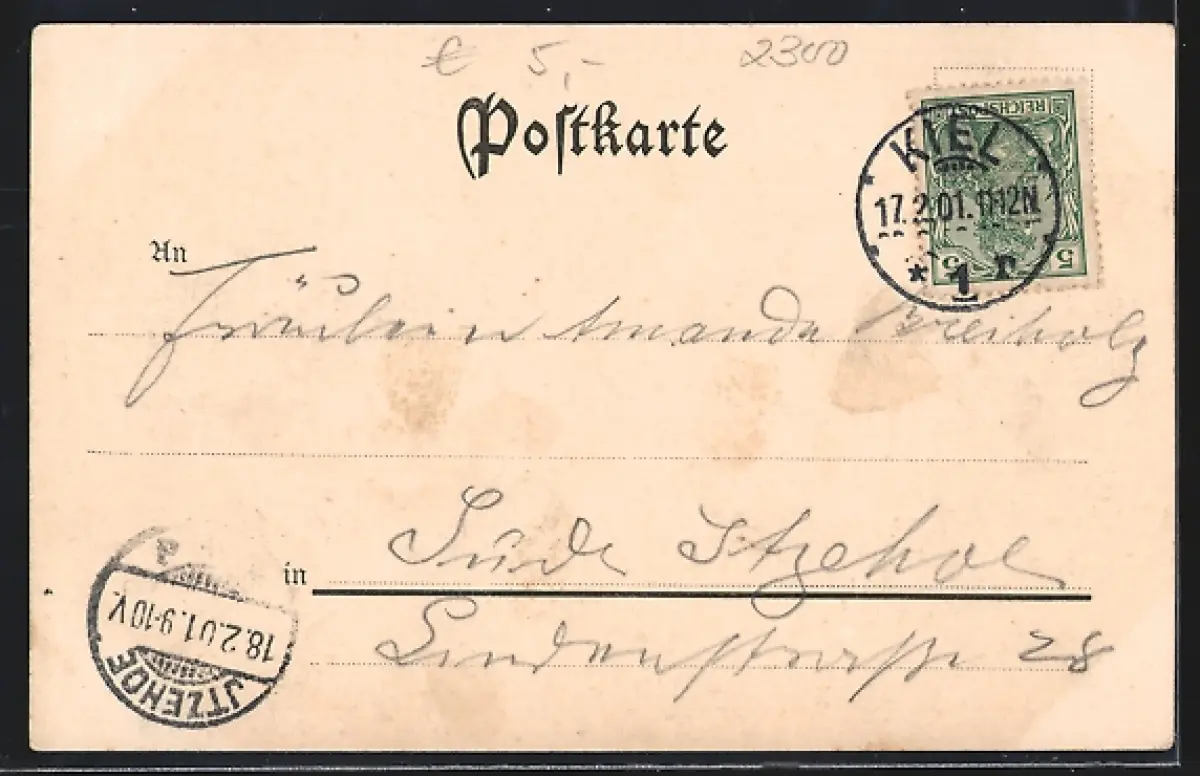 € 5,- 2300
Postkarte
REICHSPOST
KIEL
17.2.01.11-12N
* 1 r
5 5
An
Fräulein Amanda Breiholz
in Sude Itzehoe
Lindenstrasse 28
JTZEHOE
18.2.01.9-10V.